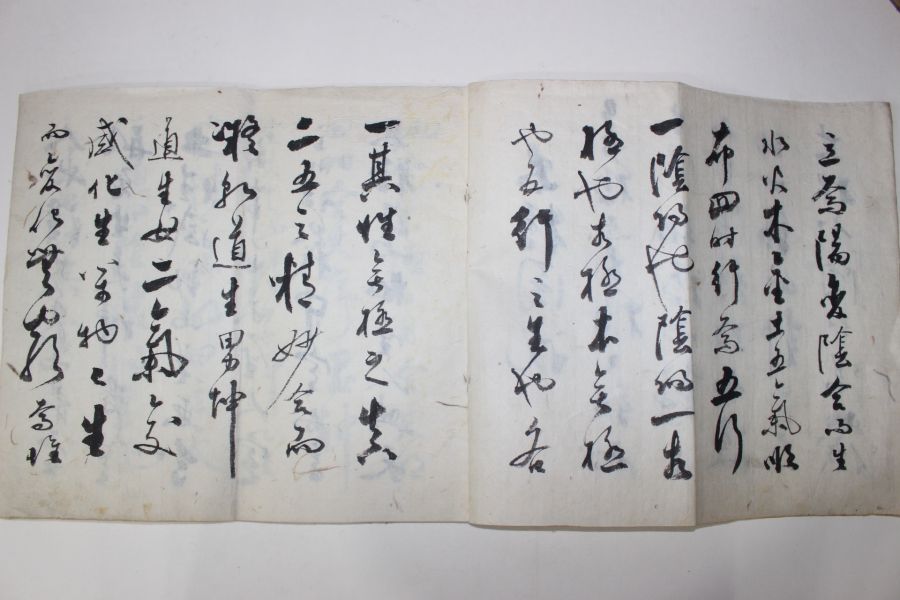 立焉陽變陰合而生
水火木金土五氣順
布四时行焉五行
一陰陽也陰陽一太
極也太極本無極
也五行之生也各
一其性無極之真
二五之精妙合而
凝乾道生男坤
道生女二氣交
感化生萬物々生
而變化無窮焉惟